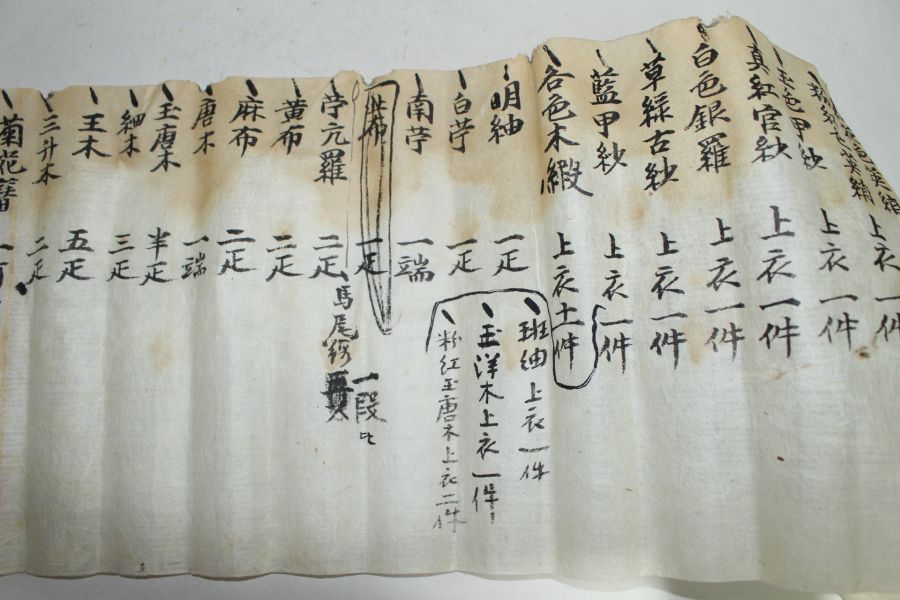 英綃 上衣 一件
玉色甲紗 上衣 一件
真紅官紗 上衣 一件
白色銀羅 上衣 一件
草綠古紗 上衣 一件
藍甲紗 上衣 一件
各色木緞 上衣 十一件
班紬上衣一件
玉洋木上衣一件
粉紅玉唐木上衣二件
明紬 一疋
白苧 一疋
南苧 一端
布 一疋
苧亢羅 二疋
馬尾 一段
黃布 二疋
麻布 二疋
唐木 一端
玉唐木 半疋
細木 三疋
玉木 五疋
三升木 二疋
菊花